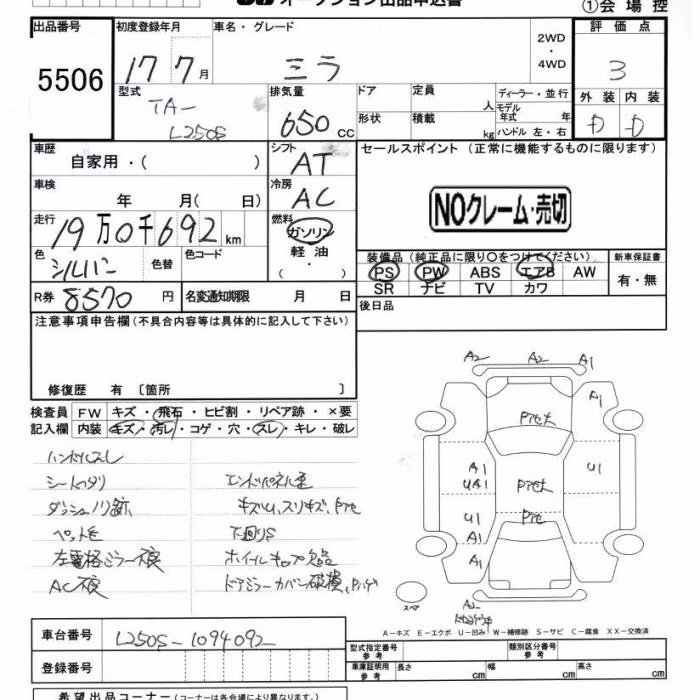 ①会場控
出品番号
5506
初度登録年月
17 7月
車名・グレード
ミラ
2WD
・
4WD
評価点
3
型式
TA-
L250S
排気量
650 cc
ドア
定員
人
形状
積載
kg
ディーラー・並行
モデル年式 年
ハンドル 左・右
外装 内装
D D
車歴
自家用・( )
シフト
AT
セールスポイント (正常に機能するものに限ります)
車検
年 月( 日)
冷房
AC
NOクレーム・売切
走行
19万0千692km
燃料
ガソリン
軽油
・
( )
色
シルバー
色替
色コード
装備品(純正品に限り○をつけてください)
PS PW ABS エアB AW
SR ナビ TV カワ
新車保証書
有・無
R券
8570円
名変通知期限 月 日
後日品
注意事項申告欄(不具合内容等は具体的に記入して下さい)
修復歴 有 〔箇所 〕
検査員 FW キズ・飛石・ヒビ割・リペア跡・×要
記入欄 内装 キズ・汚レ・コゲ・穴・スレ・キレ・破レ
ハンドルスレ
シートヘタリ
ペット毛
左電格ミラー不良
AC不良
キズU、スリキズ、Pte
下回りS
ホイールキャップ欠品
ドアミラーカバー破損
A2 A2 A1
A1
Pせt
A1
UA1
Pせt
U1
U1
A1
A1
A2
スペア
A-キズ E-エクボ U-凹み W-補修跡 S-サビ C-腐食 XX-交換済
車台番号
L250S-1094092
登録番号
型式指定番号
参考
類別区分番号
参考
車庫証明用
参考
長さ cm
幅 cm
高さ cm
希望出品コーナー(コーナーは各会場により異なります。)